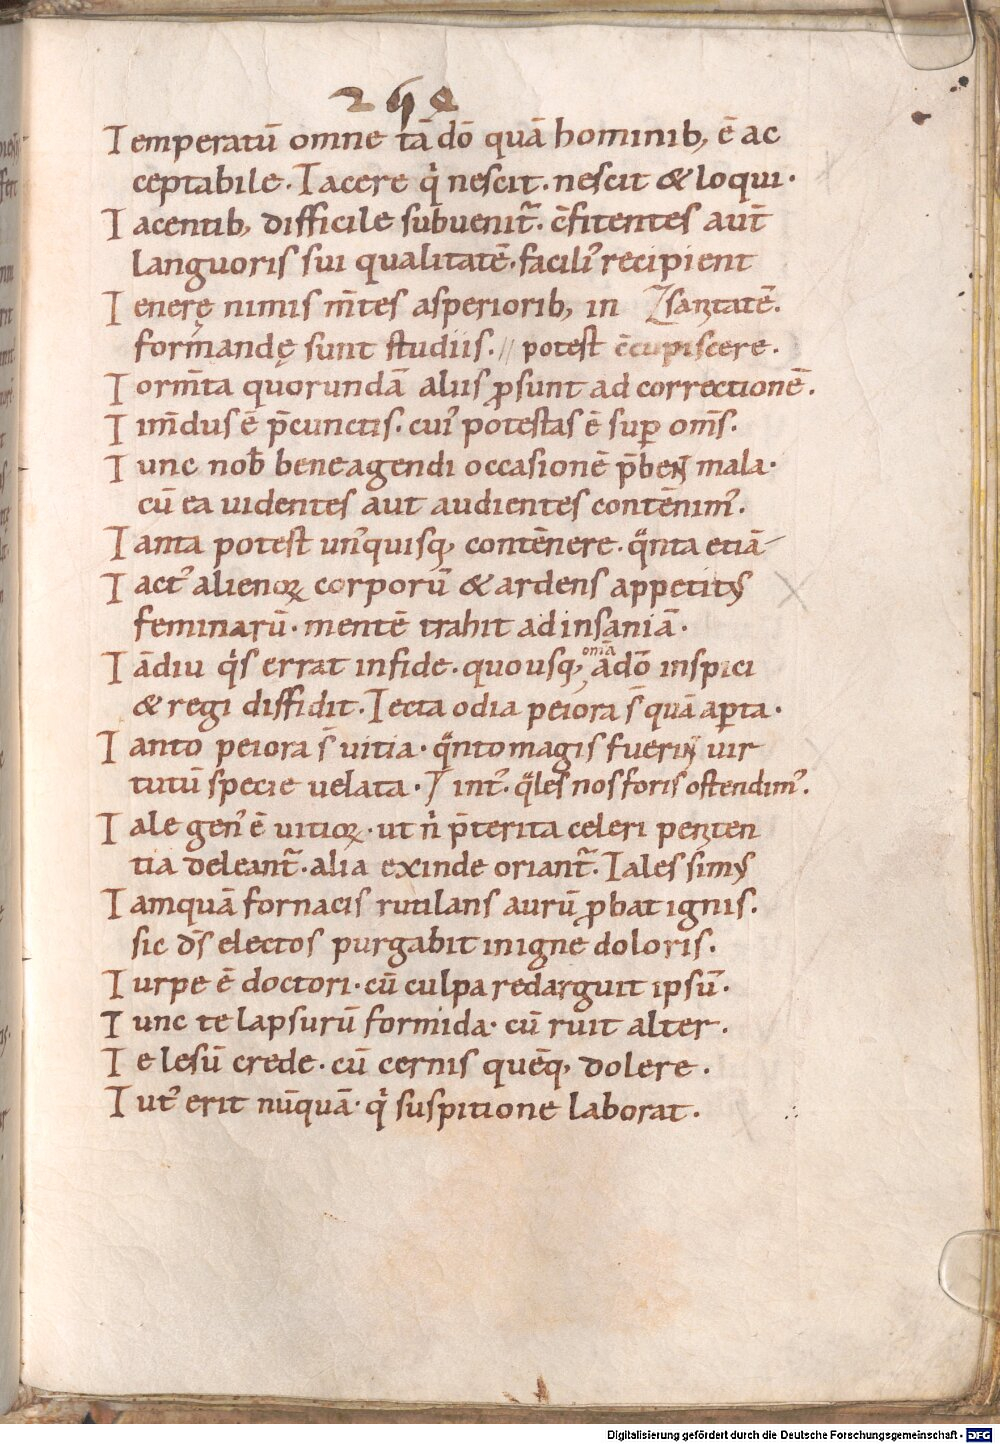 264
Temperatū omne tā dō quā hominib; ē ac
ceptabile. Tacere q̇ nescit. nescit & loqui.
Tacentib; difficile subuenit̄. c̄fitentes aut̄
languoris sui qualitatē. facili᾽ recipient
Tenerę nimis m̄tes asperiorib; in sanitatē.
formandę sunt studiis. // potest c̄cupiscere.
Torm̄ta quorundā aliis ꝓsunt ad correctionē.
Tim̄dus ē p̄cunctis. cui᾽ potestas ē suꝑ om̄s.
Tunc nob̄ bene agendi occasionē p̄bent mala.
cū ea uidentes aut audientes contēnim᾽.
Tanta potest un᾽quisq; contēnere. q̈nta etiā
Tact᾽ alienoꝝ corporū & ardens appetitus
feminarū. mentē trahit ad insaniā.
Tādiu q̇s errat in fide. quousq; om̄ia ādō inspici
& regi diffidit. Tecta odia peiora s̄ quā aꝑta.
Tanto peiora s̄ uitia. q̈nto magis fuerint uir
tutū specie uelata. int᾽. q̈les nos foris ostendim᾽.
Tale gen᾽ ē uitioꝝ. ut ṅ p̄terita celeri peniten
tia deleant̄. alia exinde oriant̄. Tales simus
Tamquā fornacis rutilans aurū ꝓbat ignis.
sic d̄s electos purgabit in igne doloris.
Turpe ē doctori. cū culpa redarguit ipsū.
Tunc te lapsurū formida. cū ruit alter.
Te lesū crede. cū cernis quēq; dolere.
Tut᾽ erit nūquā. q̇ suspitione laborat.
Digitalisierung gefördert durch die Deutsche Forschungsgemeinschaft - DFG